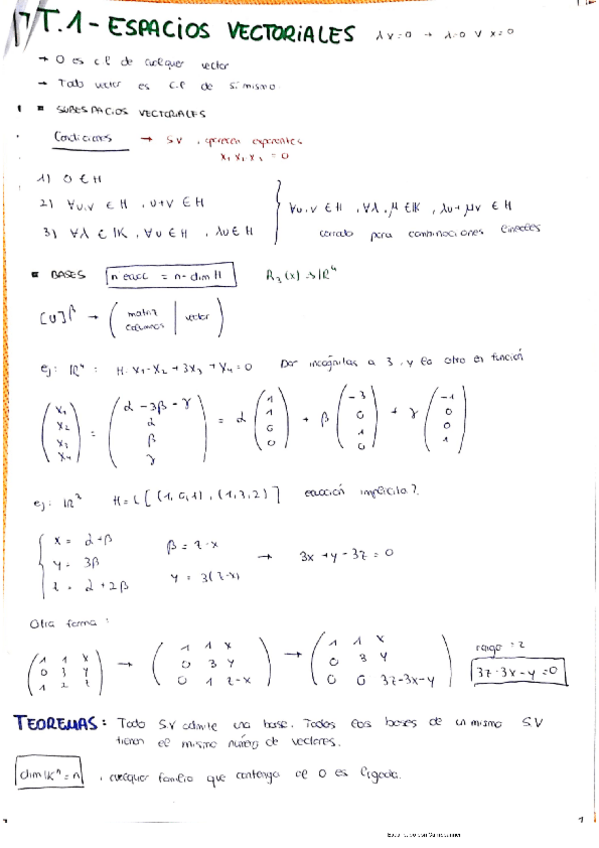 T.1 - ESPACIOS VECTORIALES λv=0 → λ=0 ∨ x=0
→ 0 es c.l de cualquier vector
→ Todo vector es c.l de si mismo
■ SUBESPACIOS VECTORIALES
Condiciones → SV , exponentes
x₁ x₂ x₃ = 0
1) 0 ∈ H
2) ∀u,v ∈ H , u+v ∈ H
3) ∀λ ∈ IK , ∀u ∈ H , λu ∈ H
∀u,v ∈ H , ∀λ,μ ∈ IK , λu + μv ∈ H
cerrado para combinaciones lineales
■ BASES n ecuac = n - dim H R₃(x) → IR⁴
[U]ᵝ → ( matriz columnas | vector )
ej: IR⁴ : H: x₁ - x₂ + 3x₃ + x₄ = 0 Dar incógnitas a 3 , y la otra en función
(x₁ x₂ x₃ x₄) = (α - 3β - γ α β γ) = α (1 1 0 0) + β (-3 0 1 0) + γ (-1 0 0 1)
ej: IR³ H = L [ (1,0,1) , (1,3,2) ] ecuación implícita ?
x = α + β
y = 3β
z = α + 2β
β = z - x
y = 3(z-x)
→ 3x + y - 3z = 0
Otra forma :
(1 1 x 0 3 y 1 2 z) → (1 1 x 0 3 y 0 1 z-x) → (1 1 x 0 3 y 0 0 3z-3x-y) rango = 2
3z - 3x - y = 0
TEOREMAS : Todo S.V admite una base. Todas las bases de un mismo S.V
tienen el mismo número de vectores.
dim IKⁿ = n , cualquier familia que contenga el 0 es ligada.
1